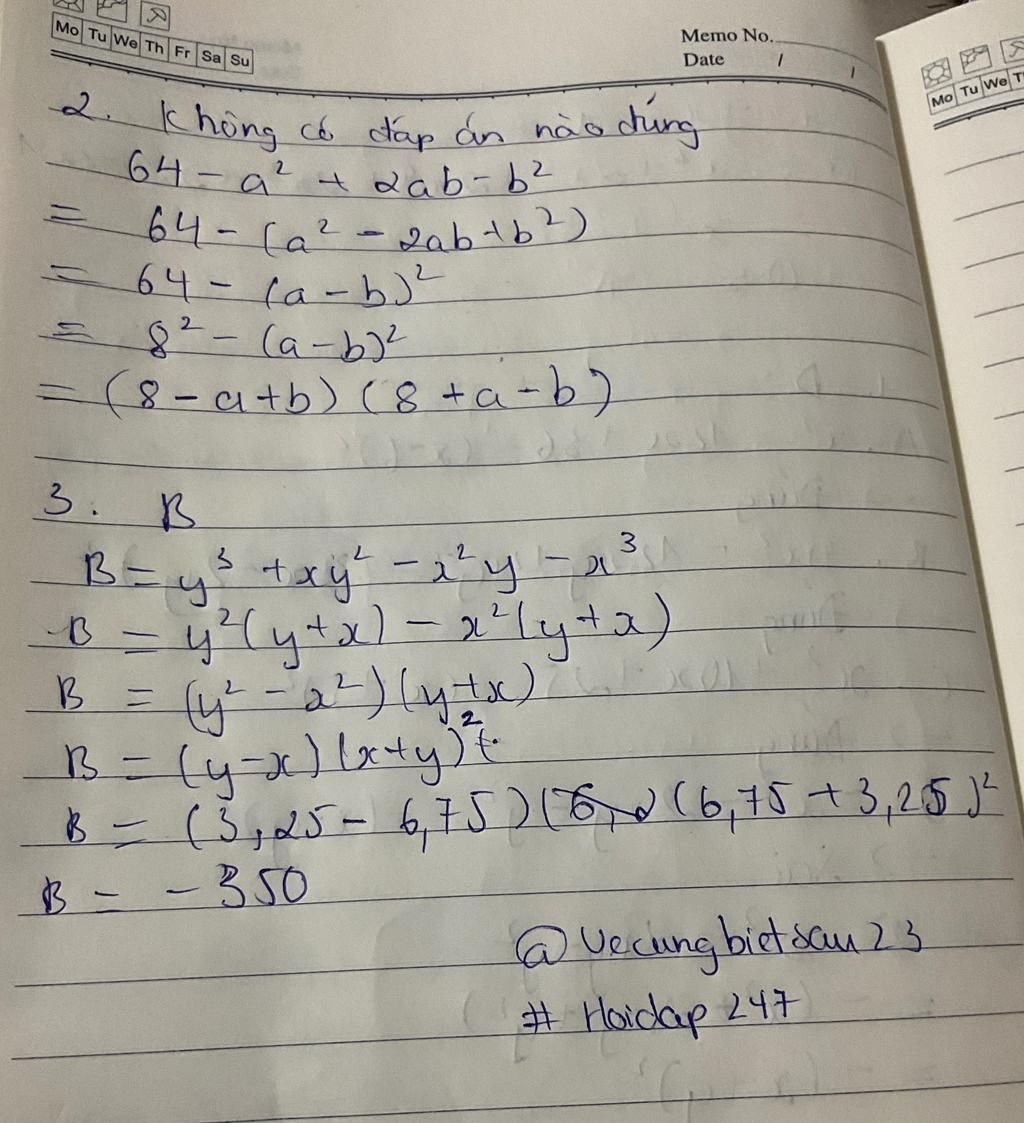 Mo Tu We Th Fr Sa Su
Memo No.
Date / /
Mo Tu We T
2. Không có đáp án nào đúng
64 - a² + 2ab - b²
= 64 - (a² - 2ab + b²)
= 64 - (a - b)²
= 8² - (a - b)²
= (8 - a + b) (8 + a - b)
3. B
B = y³ + xy² - x²y - x³
B = y²(y + x) - x²(y + x)
B = (y² - x²)(y + x)
B = (y - x)(x + y)²
B = (3,25 - 6,75)(6,75 + 3,25)²
B = -350
@Vecungbietsau23
# Hoidap 247